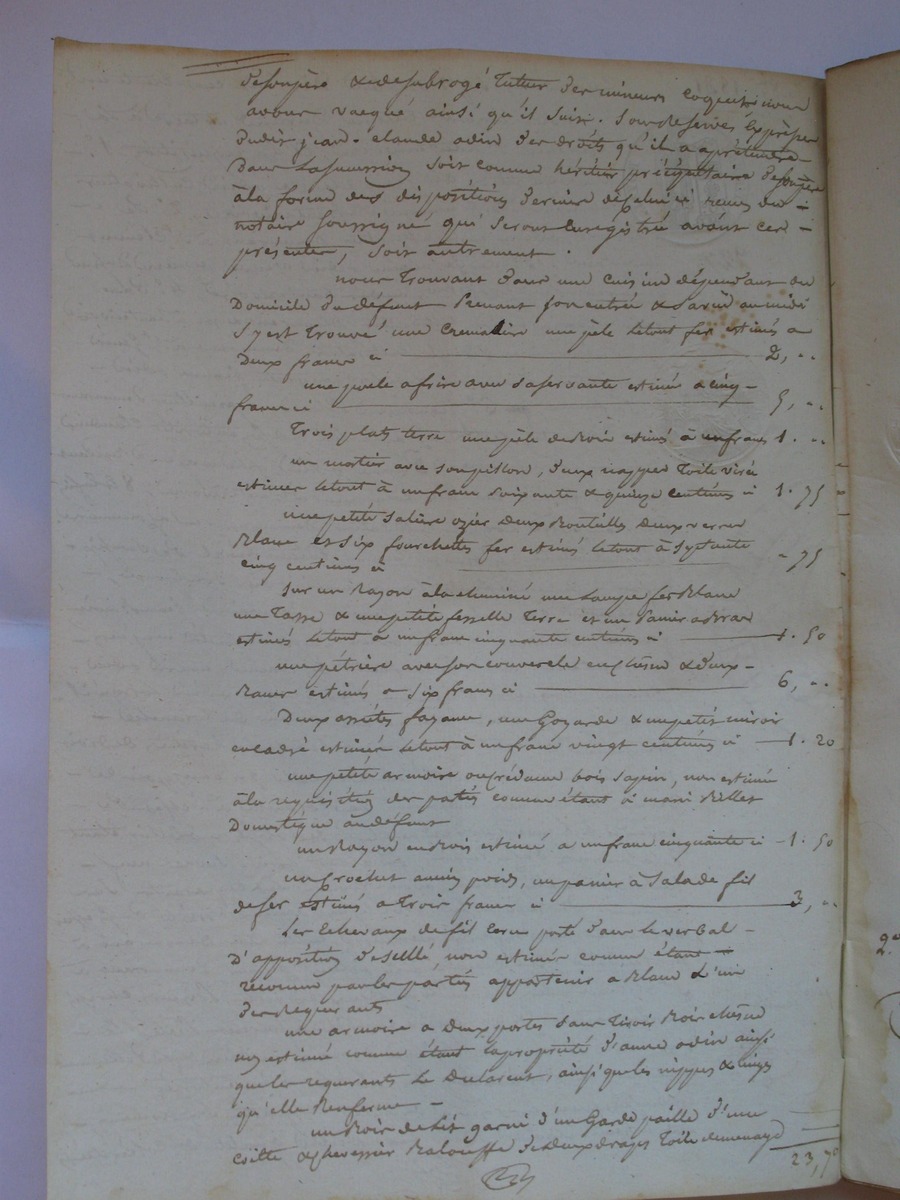 de son père & de subrogé tuteur des mineurs nous
avons vaqué ainsi qu'il suit. Sous reserves Expresse
dudit jean claude odin des droits qu'il a à prétendre
Dans La succession soit comme héritier précipuitaire de son père
à la forme des dispositions dernier de celui ci reçues du
notaire soussigné qui seront Enregistré avant ces
présentes, soit autrement.
nous trouvant dans une cuisine dépendant du
Domicile du défunt Prenant son entrée & au midi
S'y est trouvé une Cremalière une pèle Le tout fer estimés a
Deux francs ci 2, ..
une poele a frire avec sa servante estimée a cinq
francs ci 5, ..
Trois plats terre une pèle de Bois estimés à un franc 1. ..
un mortier avec son pillon, deux nappes Toile
estimer Le tout à un franc soixante & quinze centimes ci 1. 75
une petite Salière ozier Deux Bouteilles Deux verres
Blanc et Six fourchettes fer estimés Le tout à Septante
cinq centimes ci - 75
Sur un Rayon à la cheminée une Lampe fer Blanc
une Tasse & une petite fesselle Terre et un Panier a Bras
estimés Le tout a un franc cinquante centimes ci 1. 50
une pétrière avec son couvercle en Chesne & deux
Bancs estimés a Six francs ci 6, ..
Deux assietes fayance, une & un petit miroir
encadré estimés Le tout à un franc vingt centimes ci 1. 20
une petite armoire bois Sapin, non estimée
à la requisition des parties comme étant à Billet
Domestique au défunt
un Rayon en Bois estimé a un franc cinquante ci 1. 50
un Crochet poids, un panier à Salade fil
de fer estimés a Trois francs ci 3, ..
Les Echevaux de fil porté dans Le verbal
D'apposition de scellé, non estimer comme étant
reconnu par Les parties appartenir a L'un
des Requerants
une armoire a Deux portes Sans Tiroir Bois chesne
non estimée comme étant La propriété d'anne odin ainsi
que Les requerants Le Declarent, ainsi que Les nippes & Linges
qu'elle Renferme
un Bois de Lit garni d'un Garde paille d'une
coitte & chevessier Balouffe de Deux draps Toile de menage
23, 70